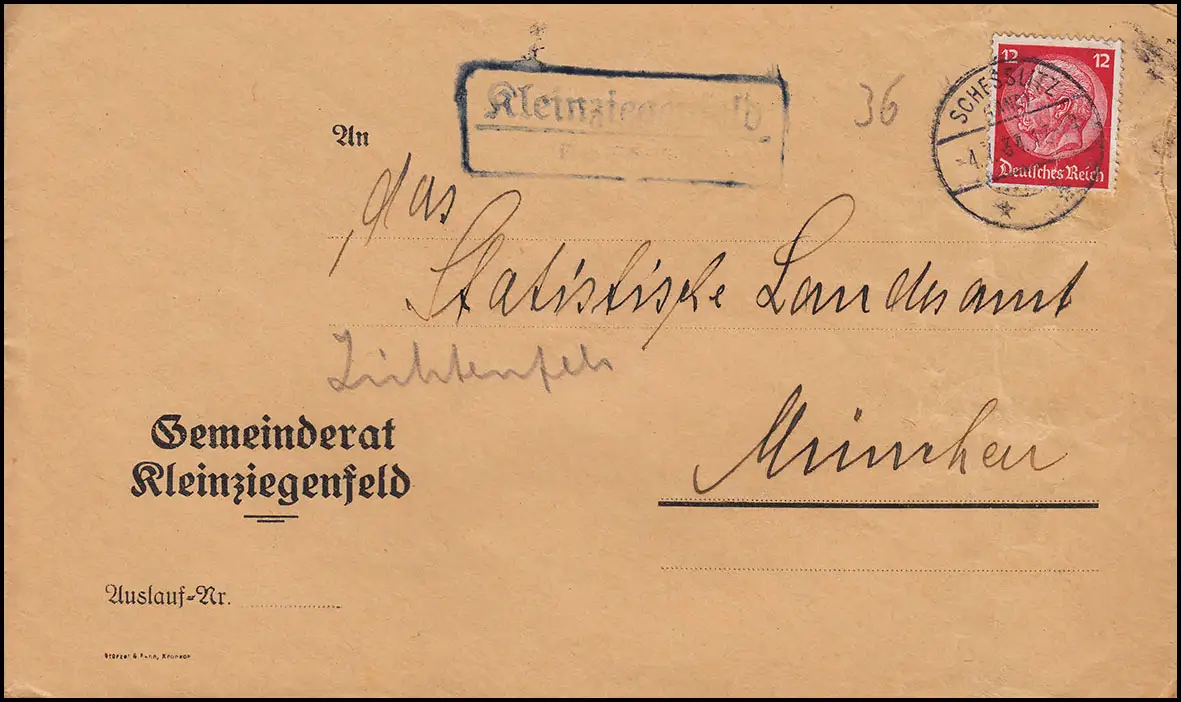 Kleinziegenfeld
36
12 12
SCHESSLITZ
Deutsches Reich
An
das
Statistische Landesamt
Lichtenfels
München
Gemeinderat
Kleinziegenfeld
Auslauf-Nr.